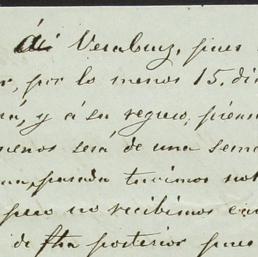 á Veracruz, pues
r, por lo menos 15. di
rá, y á su regreso, piens
menos será de una sema
pasada tuvimos not
pero no recibimos car
de fha posterior pues